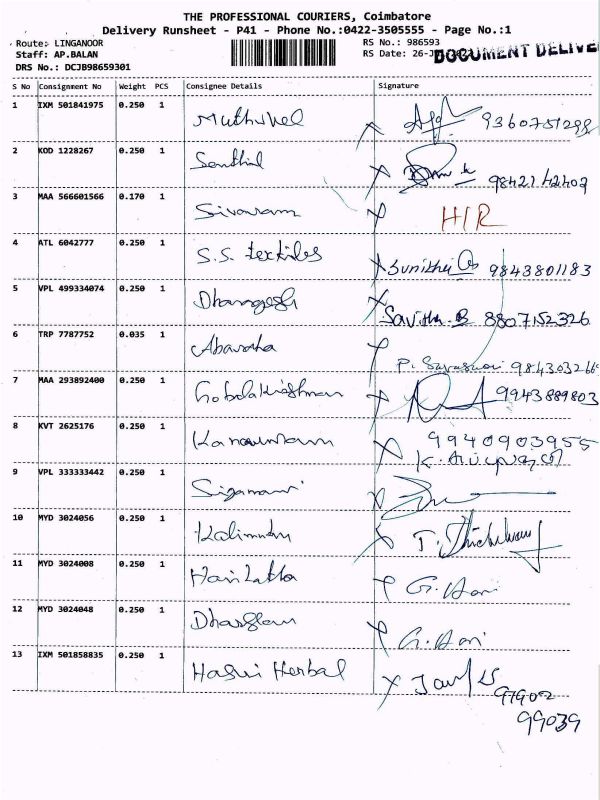 THE PROFESSIONAL COURIERS, Coimbatore
Delivery Runsheet - P41 - Phone No.:0422-3505555 - Page No.:1
Route: LINGANOOR RS No.: 986593
Staff: AP.BALAN RS Date: 26- DOCUMENT DELIVE
DRS No.: DCJB98659301
S No Consignment No Weight PCS Consignee Details Signature
1 IXM 501841975 0.250 1 Muthuvel 9360751298
2 KOD 1228267 0.250 1 Senthil 9842142402
3 MAA 566601566 0.170 1 Sivaram H/R
4 ATL 6042777 0.250 1 S.S. textiles Sunitha 9843801183
5 VPL 499334074 0.250 1 Savitha. B 8807152326
6 TRP 7787752 0.035 1 P. 984303266
7 MAA 293892400 0.250 1 9943889803
8 KVT 2625176 0.250 1 9940903955
K.
9 VPL 333333442 0.250 1 Sigamani
10 MYD 3024056 0.250 1 T.
11 MYD 3024008 0.250 1 G. Hari
12 MYD 3024048 0.250 1 G. Hari
13 IXM 501858835 0.250 1 Hasui Herbal
97902
99039